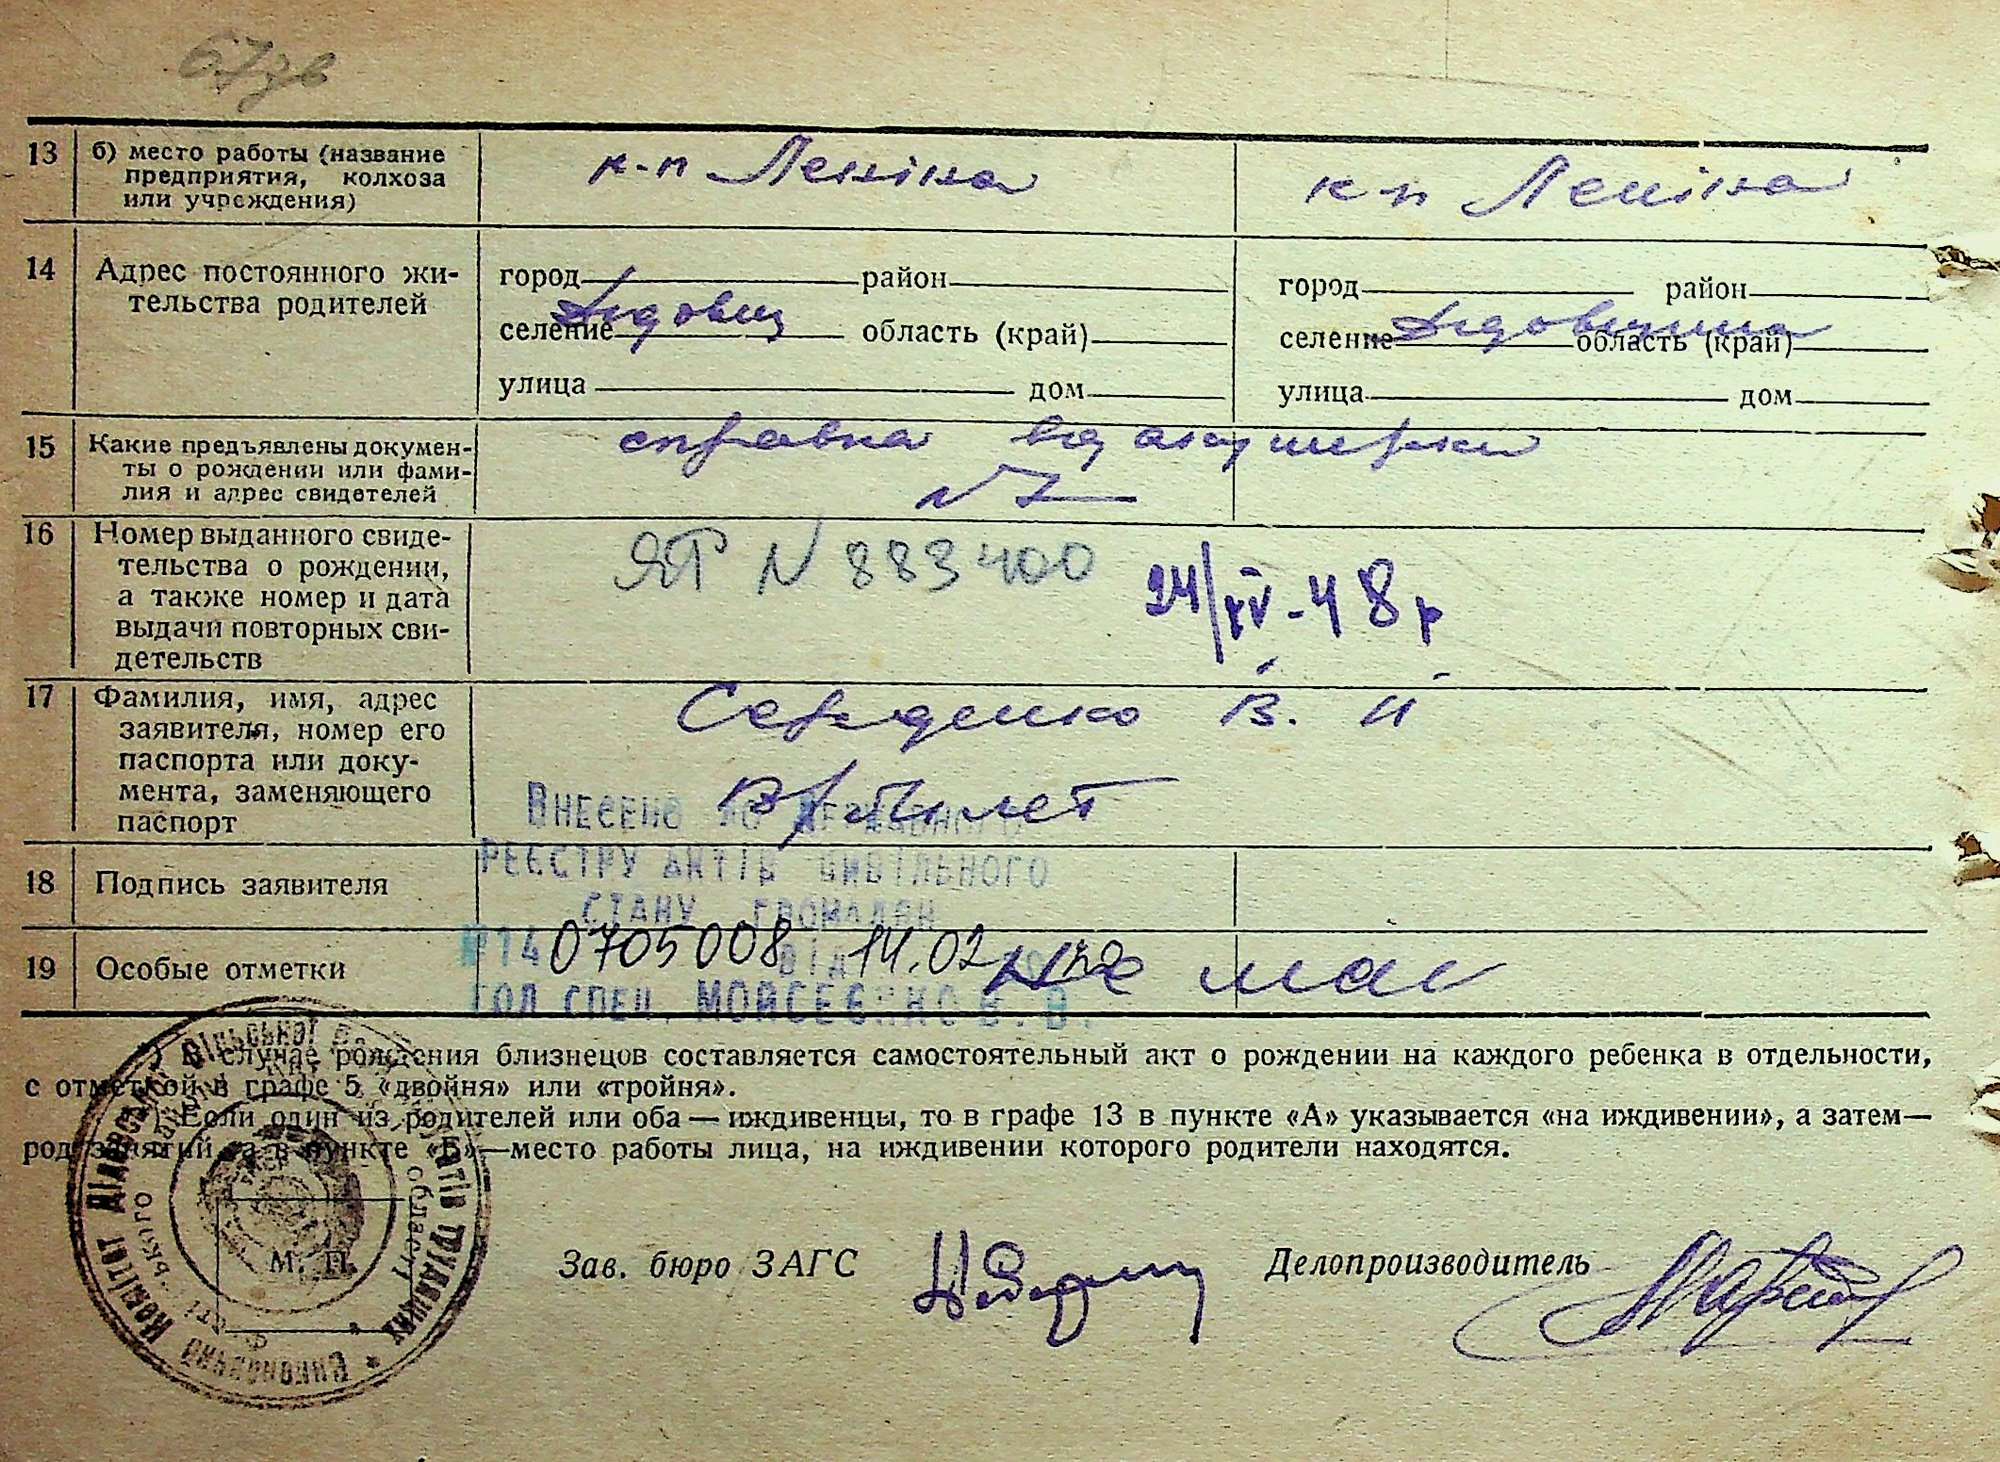 13 б) место работы (название
предприятия, колхоза
или учреждения)
к-п Леніна
к-п Леніна
14 Адрес постоянного жи-
тельства родителей
город район
селение Дідовщ область (край)
улица дом
город район
селение Дідовщина область (край)
улица дом
15 Какие предъявлены докумен-
ты о рождении или фами-
лия и адрес свидетелей
справка від акушерки
N 7
16 Номер выданного свиде-
тельства о рождении,
а также номер и дата
выдачи повторных сви-
детельств
ЯТ N 883400
24/IV-48 р
17 Фамилия, имя, адрес
заявителя, номер его
паспорта или доку-
мента, заменяющего
паспорт
Середенко В. И
В/билет
Внесено до Державного
реєстру актів цивільного
стану громадян
18 Подпись заявителя
19 Особые отметки
№14 0705008 від 14.02
гол спец. Мойсеєнко В. В.
не має
В случае рождения близнецов составляется самостоятельный акт о рождении на каждого ребенка в отдельности,
с отметкой в графе 5 «двойня» или «тройня».
Если один из родителей или оба — иждивенцы, то в графе 13 в пункте «А» указывается «на иждивении», а затем—
род занятий, а в пункте «Б»—место работы лица, на иждивении которого родители находятся.
Виконавчий Комітет Дідівської Сільської Ради депутатів трудящих
області
М. П.
Зав. бюро ЗАГС
Делопроизводитель